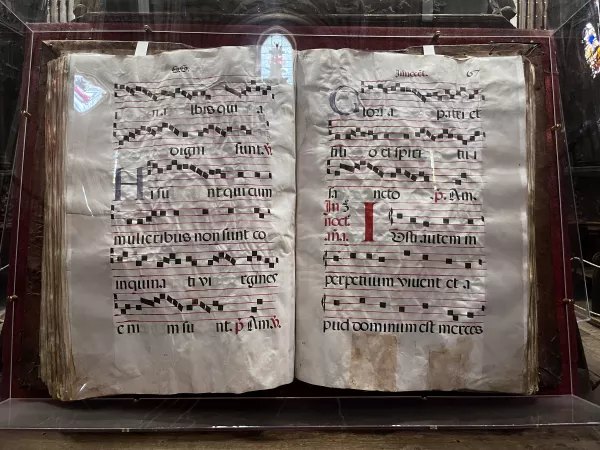 na ibis qui a
digni sunt. v.
Hi su nt qui cum
mulieribus non sunt co
inquina ti vi rgines
e ni m su nt. p Am. v.
67
Glori a patri et
fili o et spiri tu i
sa ncto .p. Am.
In
I usti autem in
perpetuum vivent et a
pud dominum est merces